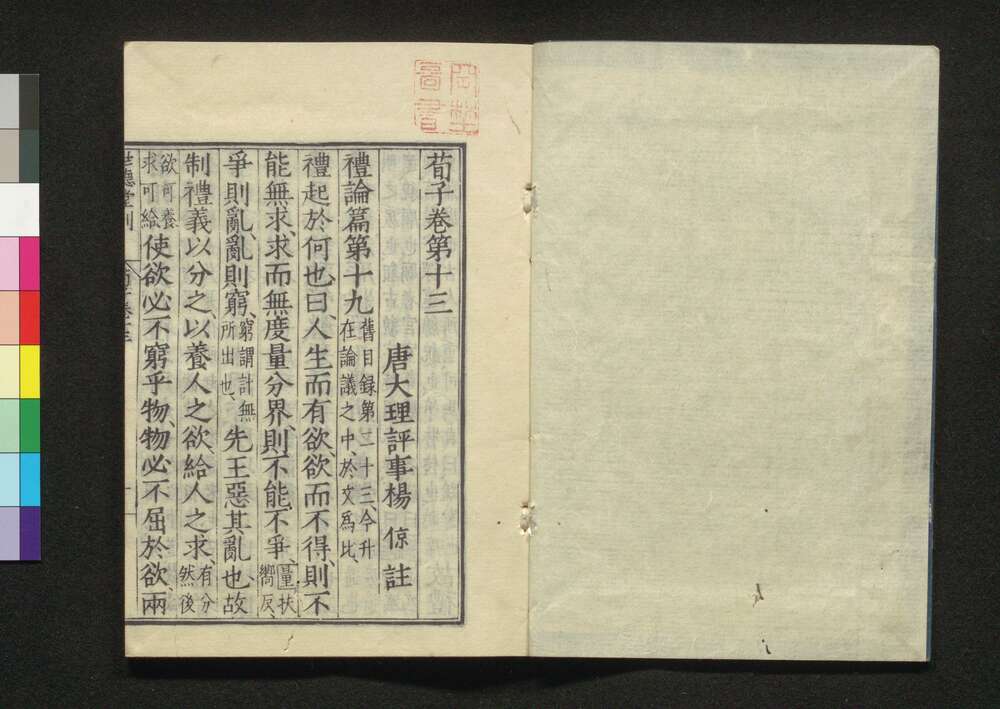 荀子卷第十三
唐大理評事楊倞註
禮論篇第十九舊目録第二十三、今升在論議之中、於文爲比、
禮起於何也、曰、人生而有欲、欲而不得、則不
能無求、求而無度量分界、則不能不爭、量扶嚮反、
爭則亂、亂則窮、窮謂計無所出也、先王惡其亂也、故
制禮義以分之、以養人之欲、給人之求、有分然後
欲可養求可給使欲必不窮乎物、物必不屈於欲、兩
世德堂刊